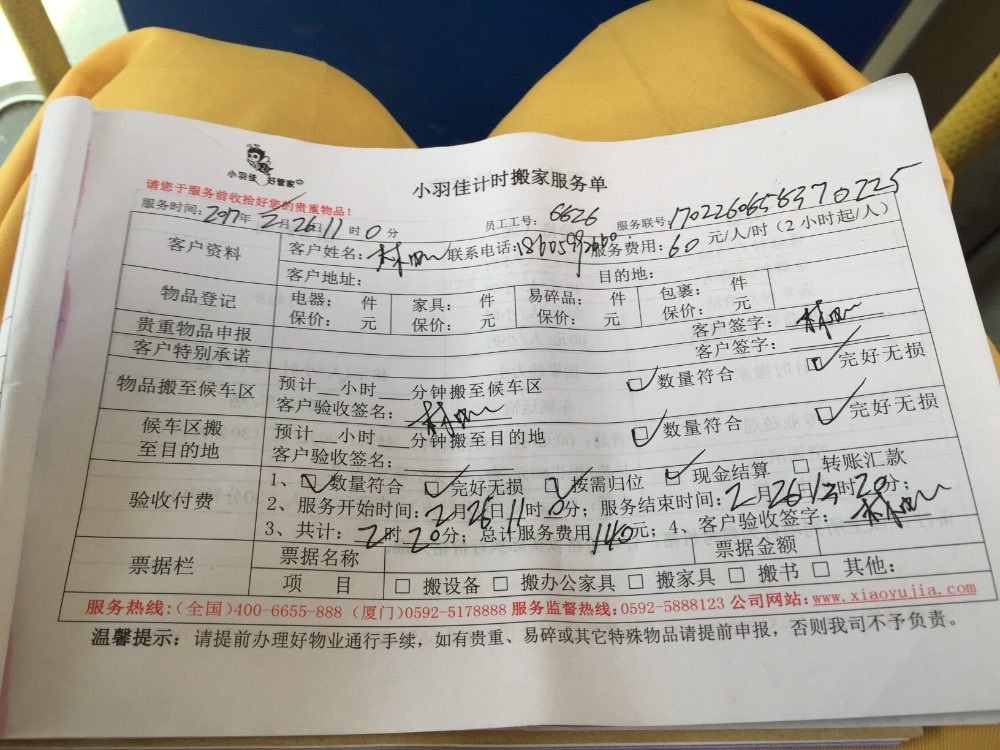 小羽佳 好管家
小羽佳计时搬家服务单
请您于服务前收拾好您的贵重物品！
服务时间：2017年2月26日11时0分 员工工号：6626 服务联号：
客户资料 客户姓名： 联系电话： 服务费用：60元/人/时（2小时起/人）
客户地址： 目的地：
物品登记 电器： 件 家具： 件 易碎品： 件 包裹： 件
保价： 元 保价： 元 保价： 元 保价： 元
贵重物品申报 客户签字：
客户特别承诺 客户签字：
物品搬至候车区 预计__小时___分钟搬至候车区 ☑数量符合 ☑完好无损
客户验收签名：
候车区搬至目的地 预计__小时___分钟搬至目的地 ☑数量符合 ☑完好无损
客户验收签名：
验收付费 1、☑数量符合 ☑完好无损 ☑按需归位 ☑现金结算 □转账汇款
2、服务开始时间：2月26日11时0分；服务结束时间：2月26日13时20分；
3、共计：2时20分；总计服务费用140元；4、客户验收签字：
票据栏 票据名称 票据金额
项 目 □搬设备 □搬办公家具 □搬家具 □搬书 □其他：
服务热线：（全国）400-6655-888（厦门）0592-5178888 服务监督热线：0592-5888123 公司网站：www.xiaoyujia.com
温馨提示：请提前办理好物业通行手续，如有贵重、易碎或其它特殊物品请提前申报，否则我司不予负责。